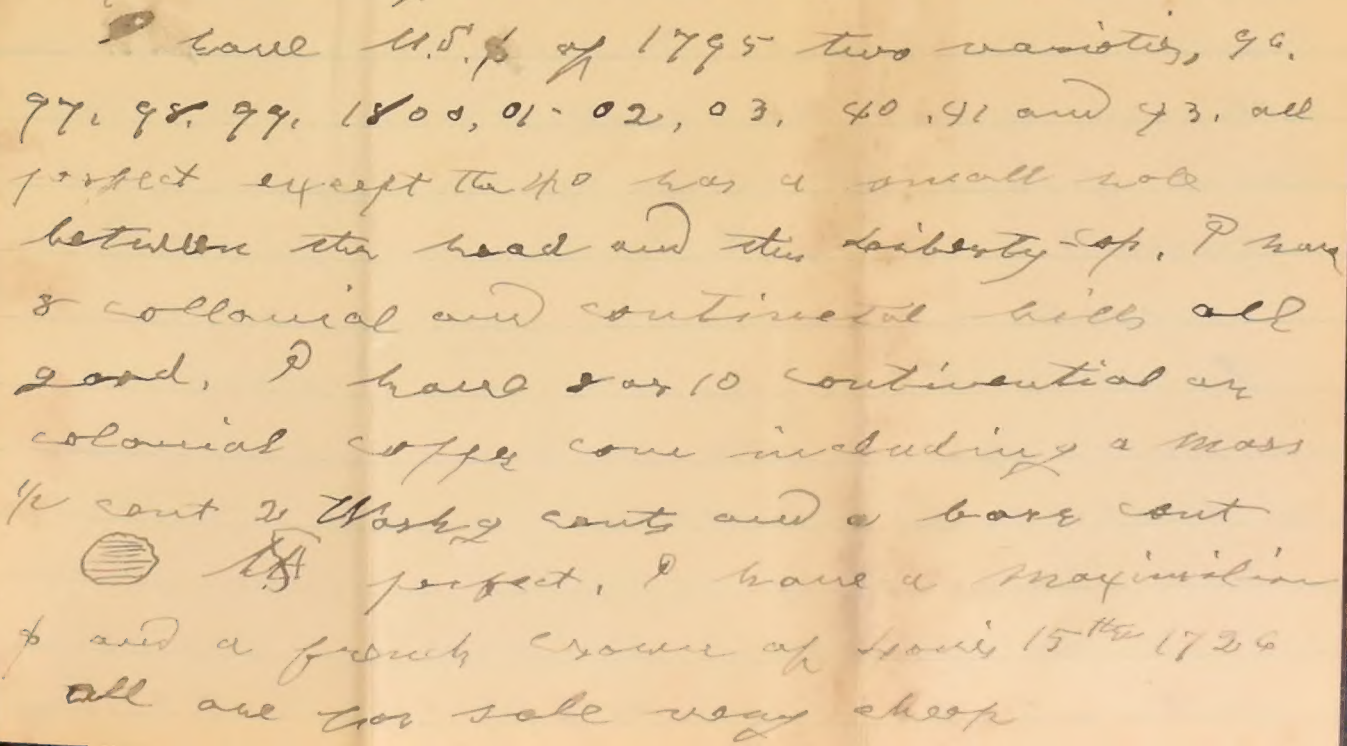 I have U.S. $ of 1795 two varioties, 96.
97. 98. 99. 1800, 01- 02, 03, 40, 41 and 43. all
perfect except the 40 has a small hole
between the head and the Liberty cap. I have
8 collonial and continetal bills all
good. I have 8 or 10 continential or
colonial copper coin including a Mass
1/2 cent 2 Washg cents and a bare cent
USA perfect. I have a maximilian
$ and a french crown of Louis 15th 1726
all are for sale very cheap